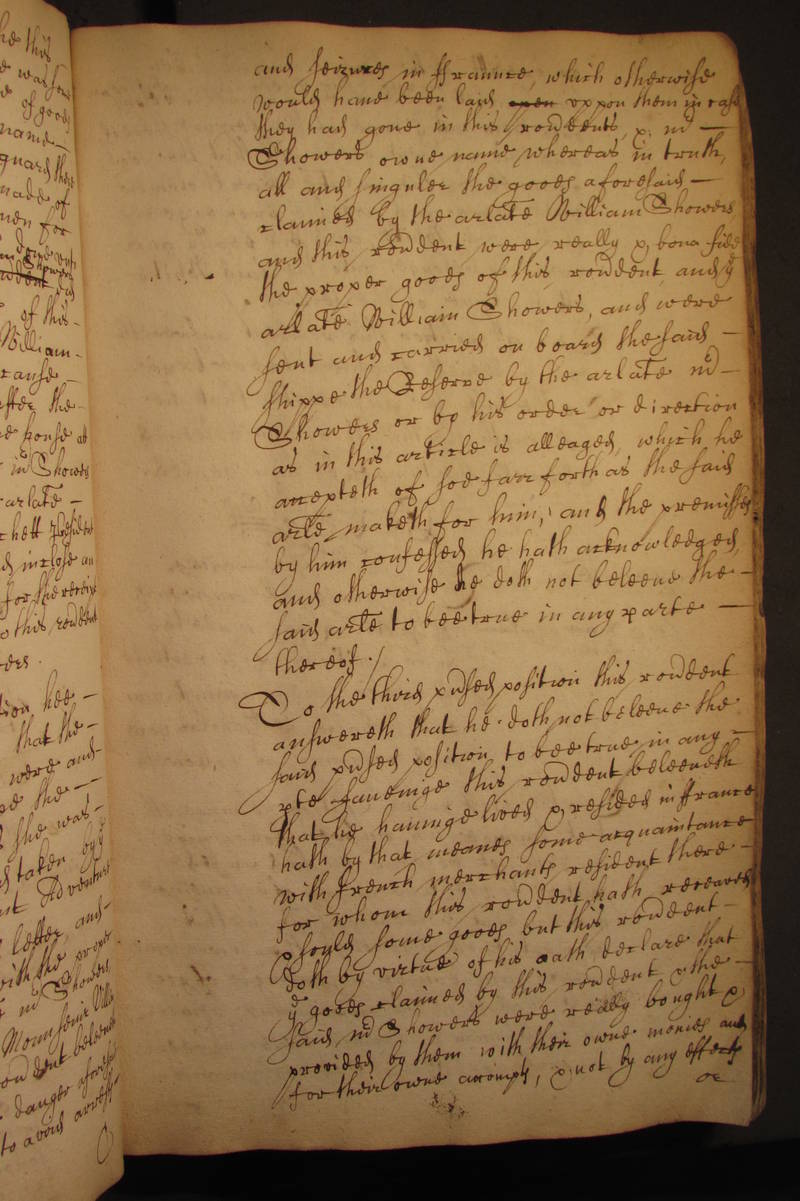 he this
e was
of goods
name –
guard
made of
men for
of this –
William –
cause –
after the –
in Showers
arlate –
chett
d inclose an
for the
o this rendent
hee –
that the –
were and –
the –
she was –
taken by ye
Adventure
letter, and –
with the
Mr Showers
Mounsieur
rondent beleeveth
danger aforesaid
to avoid arrests
and seizures in ffraunce, which otherwise
would have been laid upon uppon them in case
they had gone in this rendents, & mr –
Showers owne name whereas in truth,
all and singuler the goods aforesaid –
claimed by the arlate William Showers
and this rendent were really & bona fide
the proper goods of this rendent and ye
arlate William Showers, and were
sent and carried on board the said –
shippe the Reserve by the arlate mr –
Showers or by his order or direction
as in this article is alleaged, which he
accepteth of soe farr forth as the said
arle maketh for him, and the premisses
by him confessed he hath acknowledged,
and otherwise he doth not beleeve the –
said arle to bee true in any parte –
thereof ./
To the third pnsed position this rendent
answereth that he doth not beleeve the
said pnsed position to bee true in any –
pte saveinge this rendent beleeveth
that he haveinge lived & resided in ffrance
hath by that meanes some acquaintance
with french merchants resident there –
for whom this rendent hath receaved
& sould some goods but this rendent –
doth by virtue of his oath declare that
ye goods claimed by this rendent & the –
said mr Showers were really bought &
provided by them with their owne monies and
for their owne accompts, & not by any effects
or